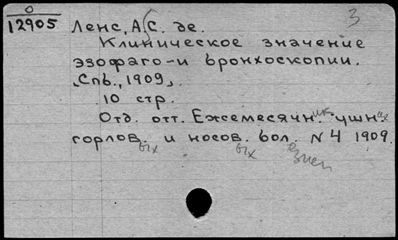 0
12905 Ленс, А. С. де.
3
Клиническое значение
эзофаго-и бронхоскопии.
Спб., 1909.
10 стр.
Отд. отт. Ежемесячн.ик ушн.ых
горлов.ых и носов.ых бол.езней N 4 1909.